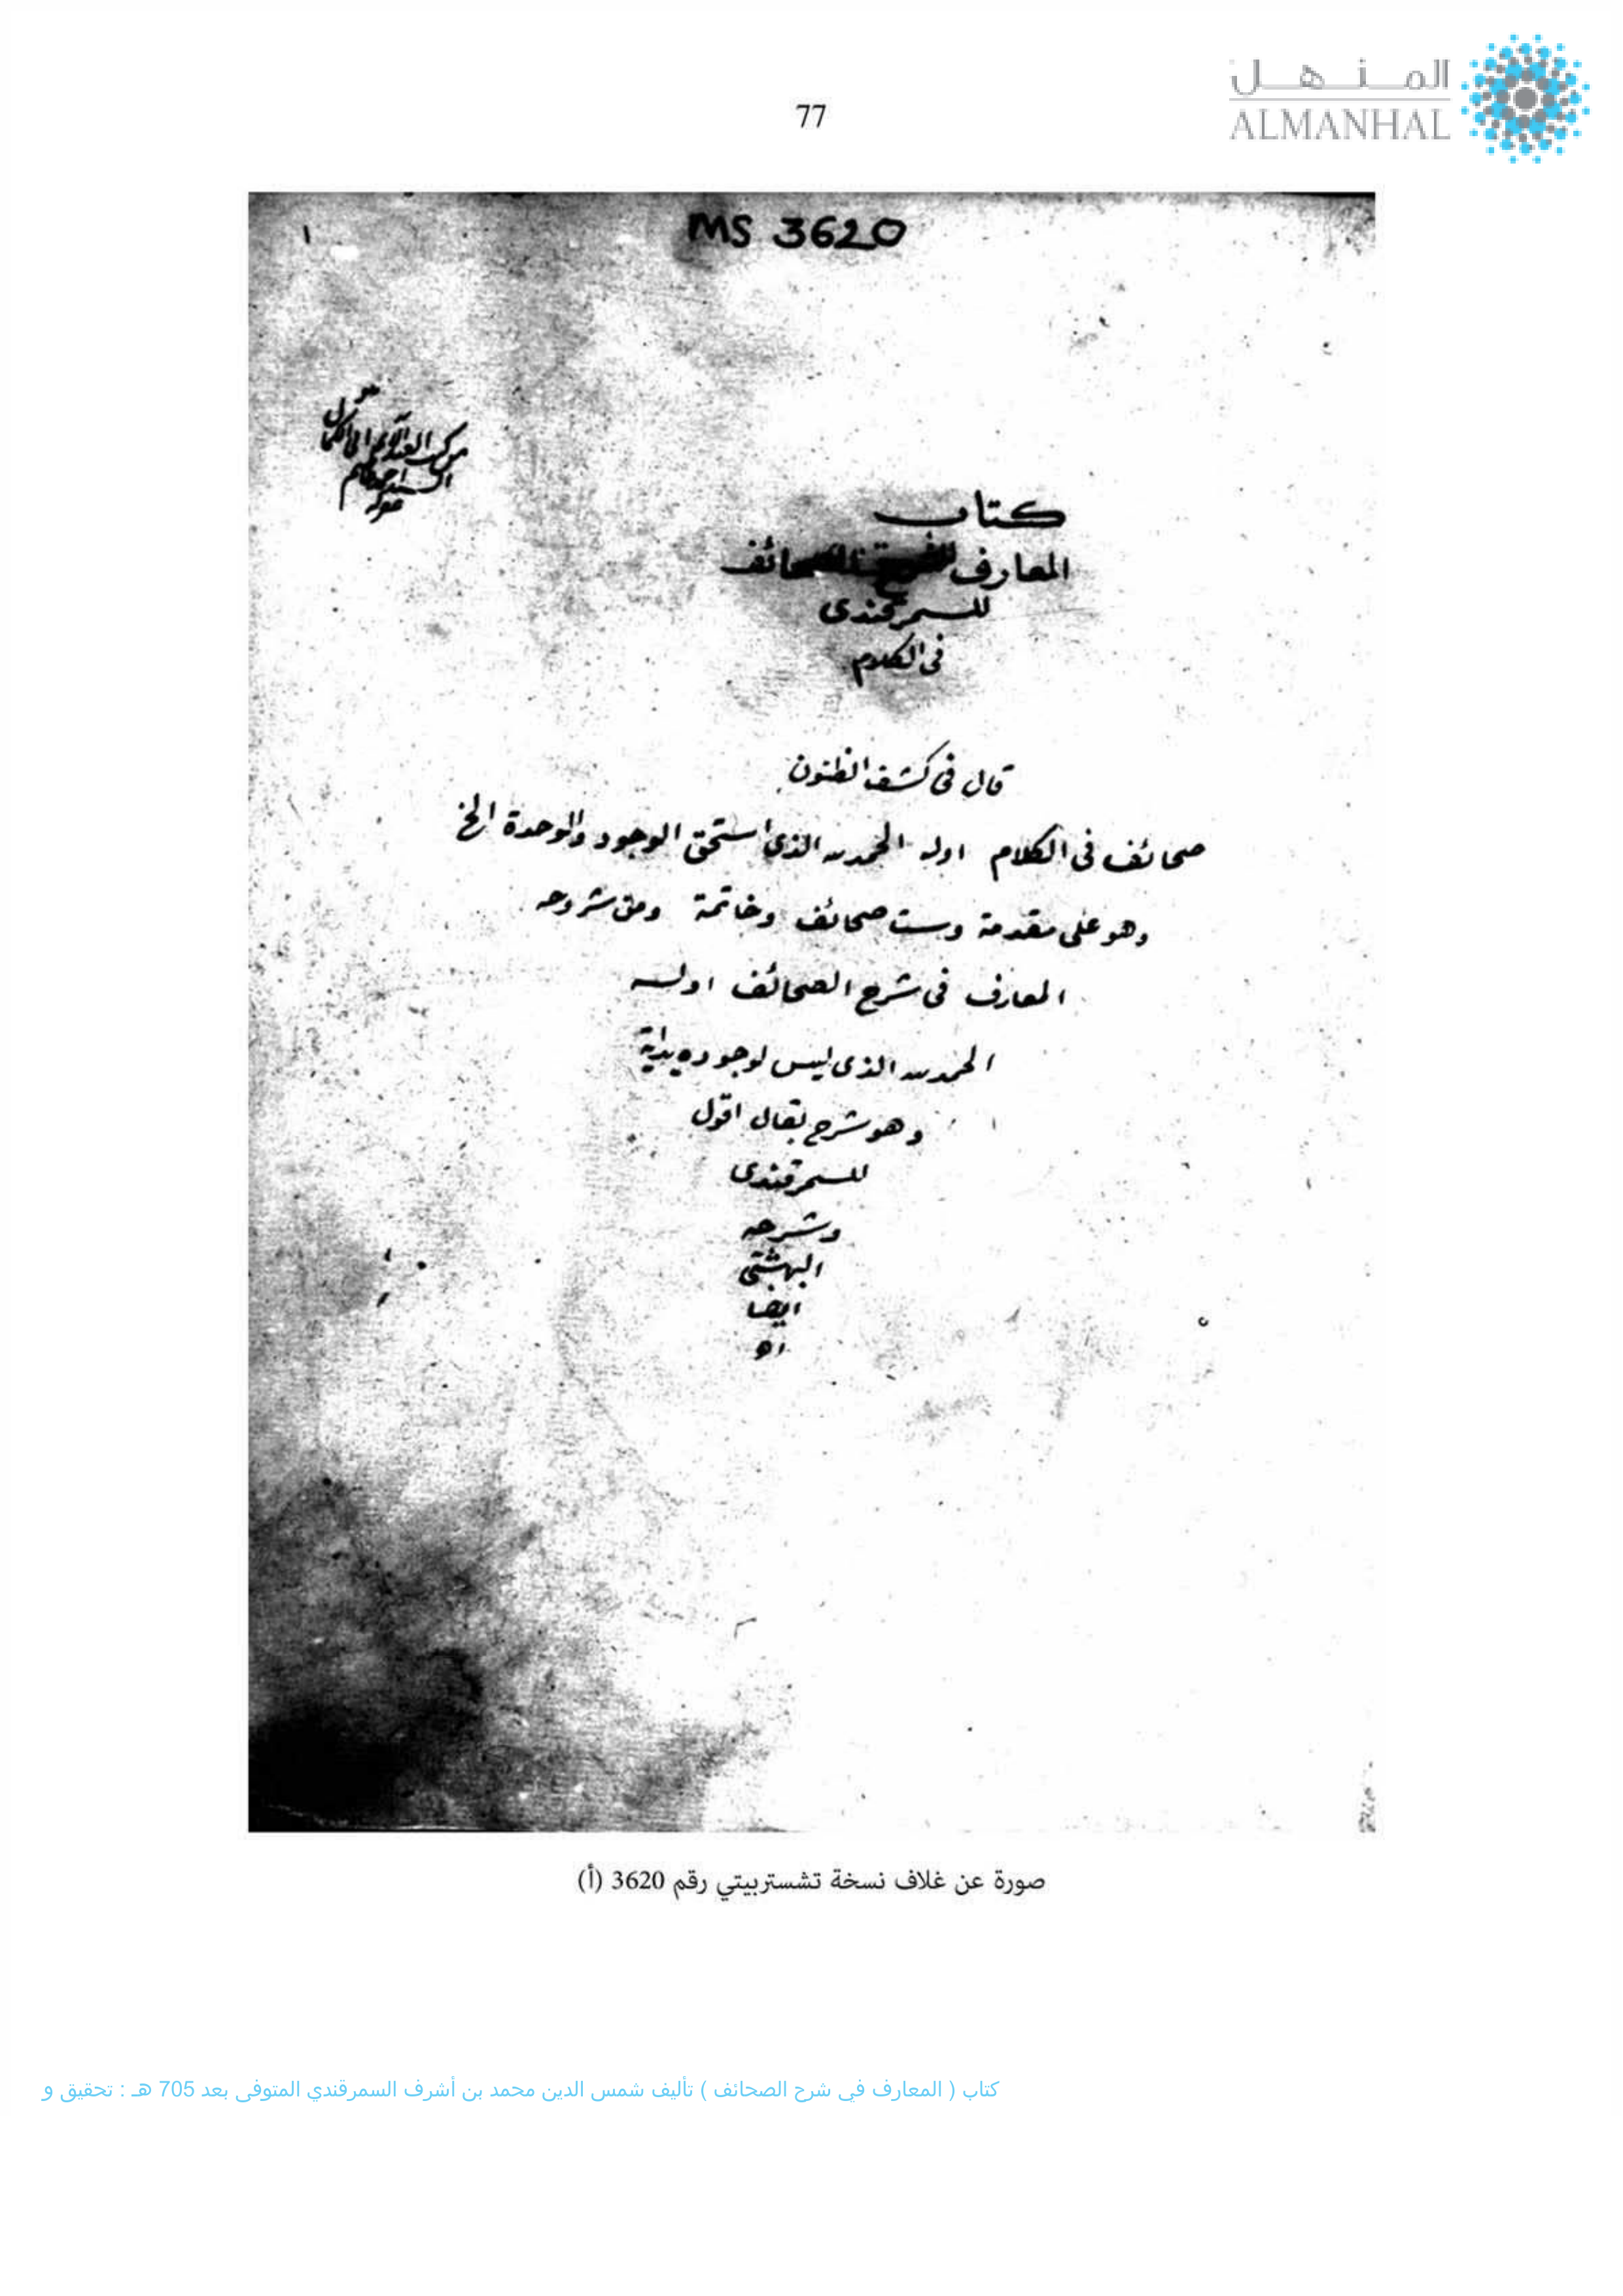 المنهل
ALMANHAL
77
MS 3620
١
كتاب
المعارف الصحائف
للسمرقندى
فى الكلام
قال فى كشف الظنون
صحائف فى الكلام اوله الحمد لله الذى استحق الوجود والوحدة الخ
وهو على مقدمة وست صحائف وخاتمة ومن شروحه
المعارف فى شرح الصحائف اوله
الحمد لله الذى ليس لوجوده بداية
وهو شرح بقال اقول
للسمرقندى
وشرحه
البهشتى
ايضا
اه
صورة عن غلاف نسخة تشستربيتي رقم 3620 (أ)
كتاب ( المعارف في شرح الصحائف ) تأليف شمس الدين محمد بن أشرف السمرقندي المتوفى بعد 705 هـ : تحقيق و